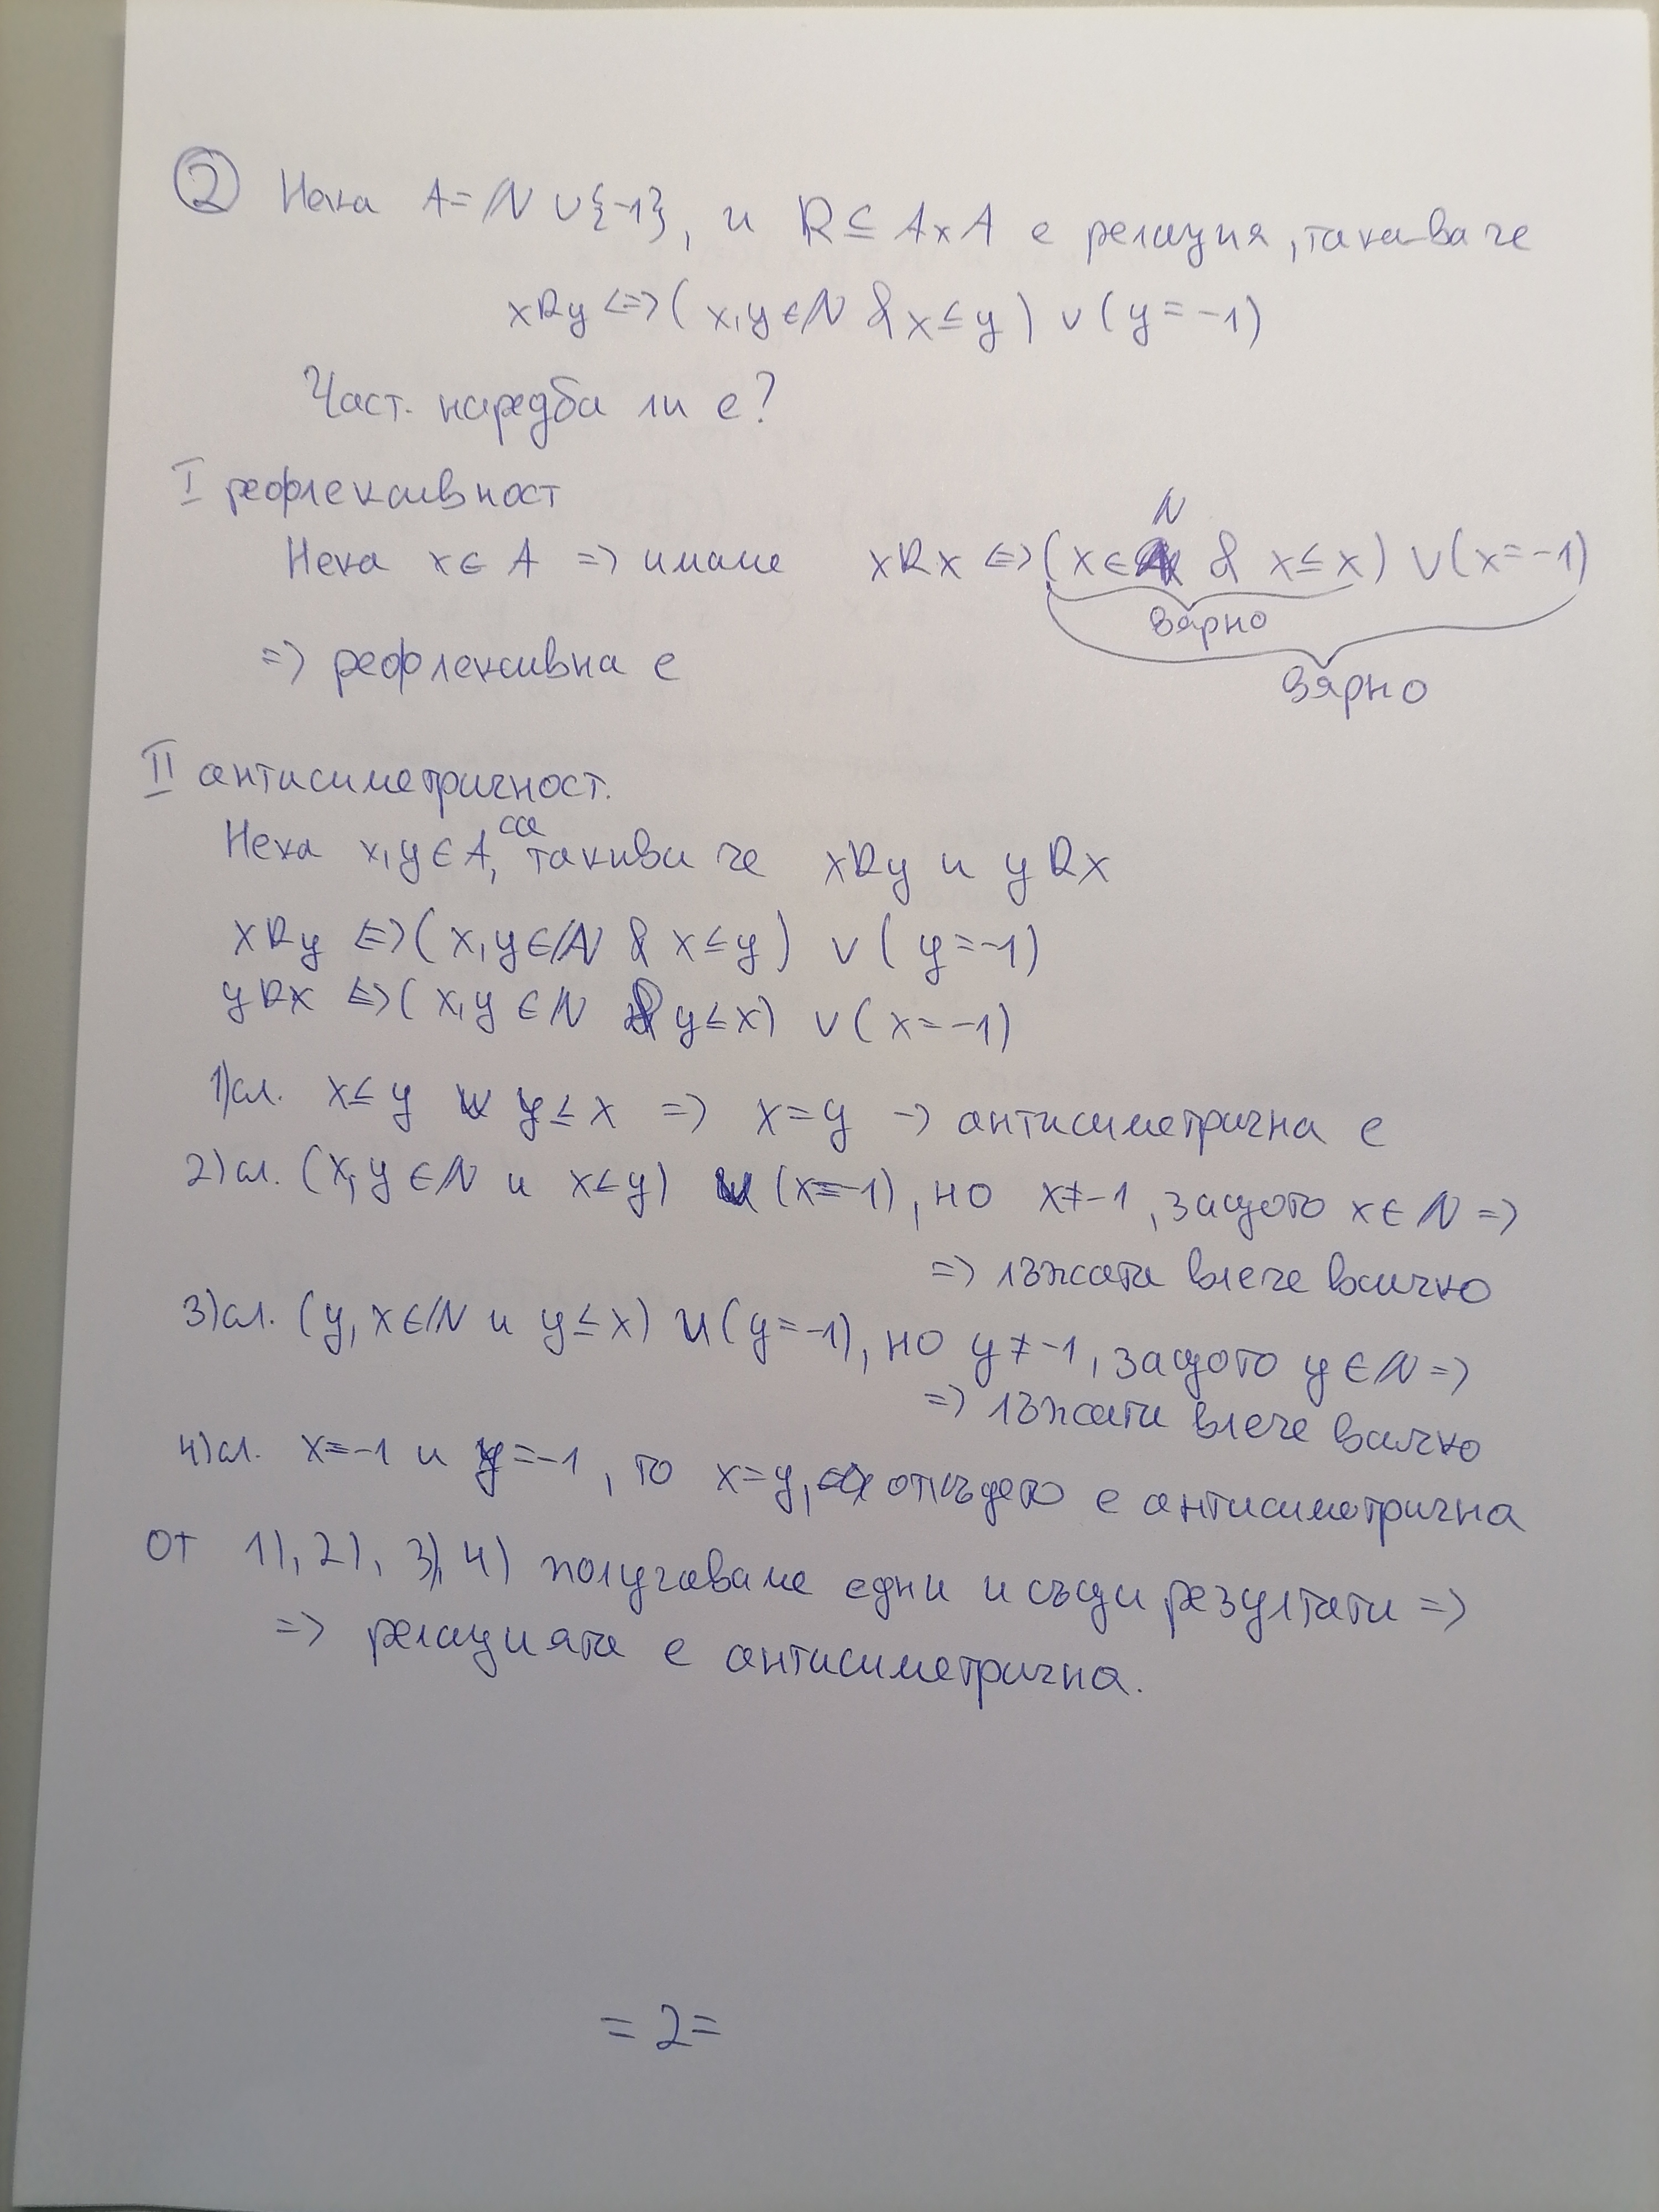 ② Нека A = ℕ ∪ {-1}, и R ⊆ A×A е релация, такава че
xRy <=> (x,y ∈ ℕ & x ≤ y) ∨ (y = -1)
Част. наредба ли е?
I рефлексивност
Нека x ∈ A => имаме xRx <=> (x ∈ ℕ & x ≤ x) ∨ (x = -1)
вярно
=> рефлексивна е
вярно
II антисиметричност.
Нека x,y ∈ A, са такива че xRy и yRx
xRy <=> (x,y ∈ ℕ & x ≤ y) ∨ (y = -1)
yRx <=> (x,y ∈ ℕ & y ≤ x) ∨ (x = -1)
1) сл. x ≤ y и y ≤ x => x = y -> антисиметрична е
2) сл. (x,y ∈ ℕ и x ≤ y) и (x = -1), но x ≠ -1, защото x ∈ ℕ =>
=> лъжата влече всичко
3) сл. (y, x ∈ ℕ и y ≤ x) и (y = -1), но y ≠ -1, защото y ∈ ℕ =>
=> лъжата влече всичко
4) сл. x = -1 и y = -1, то x = y, откъдето е антисиметрична
от 1), 2), 3), 4) получаваме едни и същи резултати =>
=> релацията е антисиметрична.
= 2 =